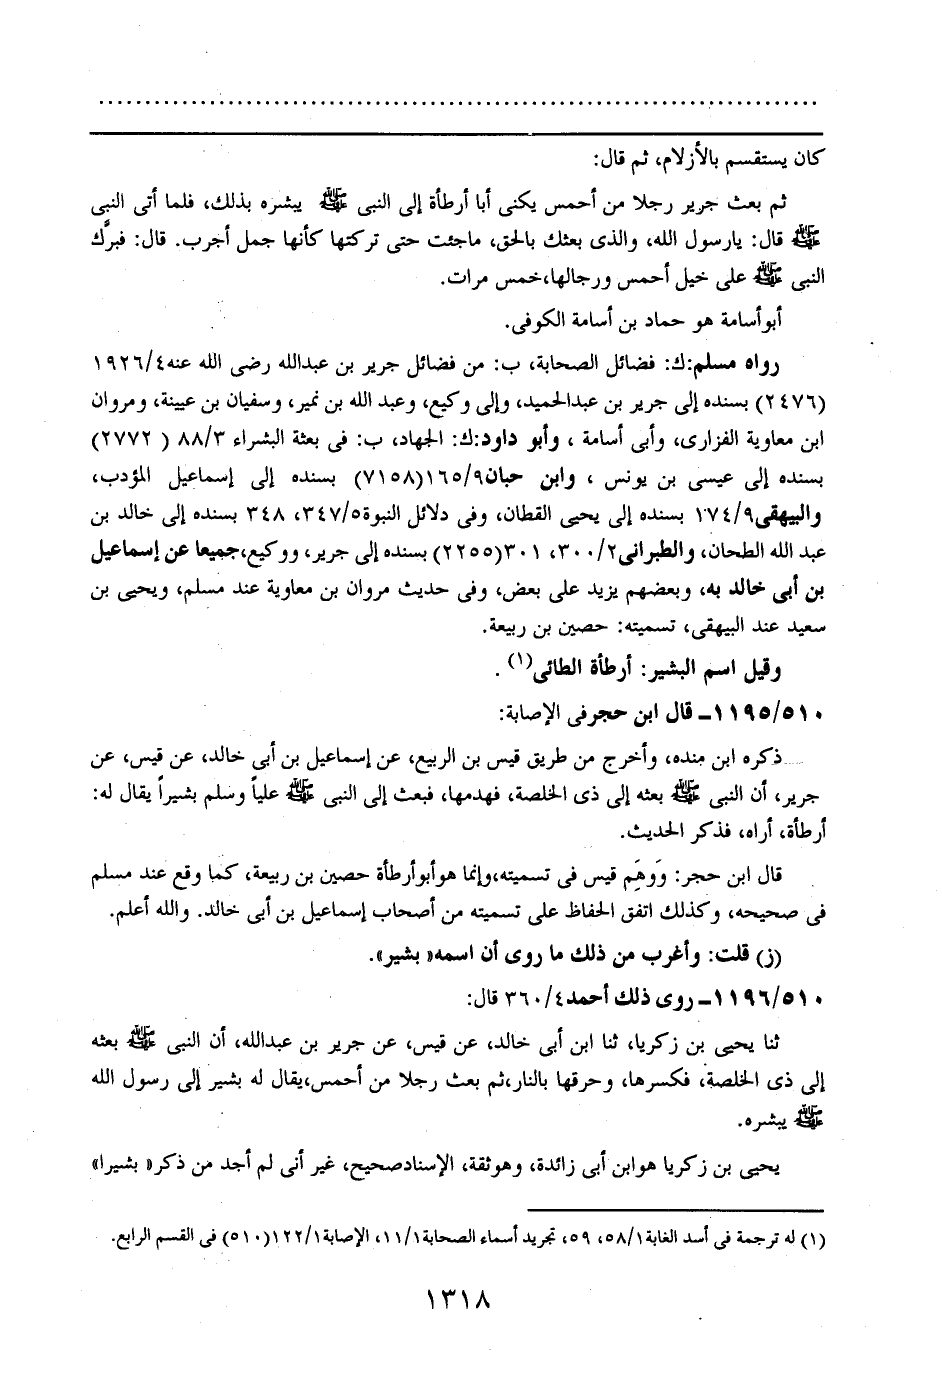 كان يستقسم بالأزلام، ثم قال:
ثم بعث جرير رجلا من أحمس يكنى أبا أرطأة إلى النبى ﷺ يبشره بذلك، فلما أتى النبى
ﷺ قال: يارسول الله، والذى بعثك بالحق، ماجئت حتى تركتها كأنها جمل أجرب. قال: فبرَّك
النبى ﷺ على خيل أحمس ورجالها،خمس مرات.
أبوأسامة هو حماد بن أسامة الكوفى.
رواه مسلم:ك: فضائل الصحابة، ب: من فضائل جرير بن عبدالله رضى الله عنه٤/١٩٢٦
(٢٤٧٦) بسنده إلى جرير بن عبدالحميد، وإلى وكيع، وعبد الله بن نمير، وسفيان بن عيينة، ومروان
ابن معاوية الفزارى، وأبى أسامة ، وأبو داود:ك: الجهاد، ب: فى بعثة البشراء ٨٨/٣ ( ٢٧٧٢)
بسنده إلى عيسى بن يونس ، وابن حبان١٦٥/٩(٧١٥٨) بسنده إلى إسماعيل المؤدب،
والبيهقى١٧٤/٩ بسنده إلى يحيى القطان، وفى دلائل النبوة٣٤٧/٥، ٣٤٨ بسنده إلى خالد بن
عبد الله الطحان، والطبرانى٣٠٠/٢، ٣٠١(٢٢٥٥) بسنده إلى جرير، ووكيع،جميعا عن إسماعيل
بن أبى خالد به، وبعضهم يزيد على بعض، وفى حديث مروان بن معاوية عند مسلم، ويحيى بن
سعيد عند البيهقى، تسميته: حصين بن ربيعة.
وقيل اسم البشير: أرطأة الطائى(١) .
١١٩٥/٥١٠ـ قال ابن حجرفى الإصابة:
ذكره ابن منده، وأخرج من طريق قيس بن الربيع، عن إسماعيل بن أبى خالد، عن قيس، عن
جرير، أن النبى ﷺ بعثه إلى ذى الخلصة، فهدمها، فبعث إلى النبى ﷺ علياً وسلم بشيراً يقال له:
أرطأة، أراه، فذكر الحديث.
قال ابن حجر: وَوَهَم قيس فى تسميته،وإنما هوأبوأرطأة حصين بن ربيعة، كما وقع عند مسلم
فى صحيحه، وكذلك اتفق الحفاظ على تسميته من أصحاب إسماعيل بن أبى خالد. والله أعلم.
(ز) قلت: وأغرب من ذلك ما روى أن اسمه« بشير».
١١٩٦/٥١٠ـ روى ذلك أحمد٣٦٠/٤ قال:
ثنا يحيى بن زكريا، ثنا ابن أبى خالد، عن قيس، عن جرير بن عبدالله، أن النبى ﷺ بعثه
إلى ذى الخلصة، فكسرها، وحرقها بالنار،ثم بعث رجلا من أحمس،يقال له بشير إلى رسول الله
ﷺ يبشره.
يحيى بن زكريا هوابن أبى زائدة، وهوثقة، الإسنادصحيح، غير أنى لم أجد من ذكر« بشيرا»
(١) له ترجمة فى أسد الغابة٥٨/١، ٥٩، تجريد أسماء الصحابة١١/١، الإصابة١٢٢/١(٥١٠) فى القسم الرابع.
١٣١٨